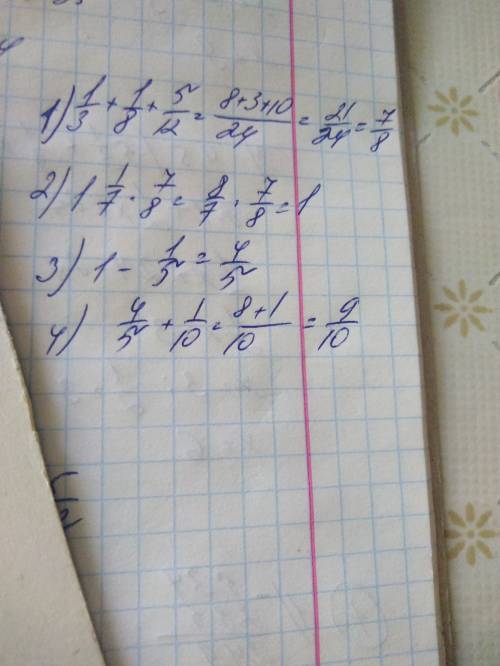 1) 1/3 + 1/8 + 5/12 = (8+3+10)/24 = 21/24 = 7/8
2) 1 1/7 · 7/8 = 8/7 · 7/8 = 1
3) 1 - 1/5 = 4/5
4) 4/5 + 1/10 = (8+1)/10 = 9/10